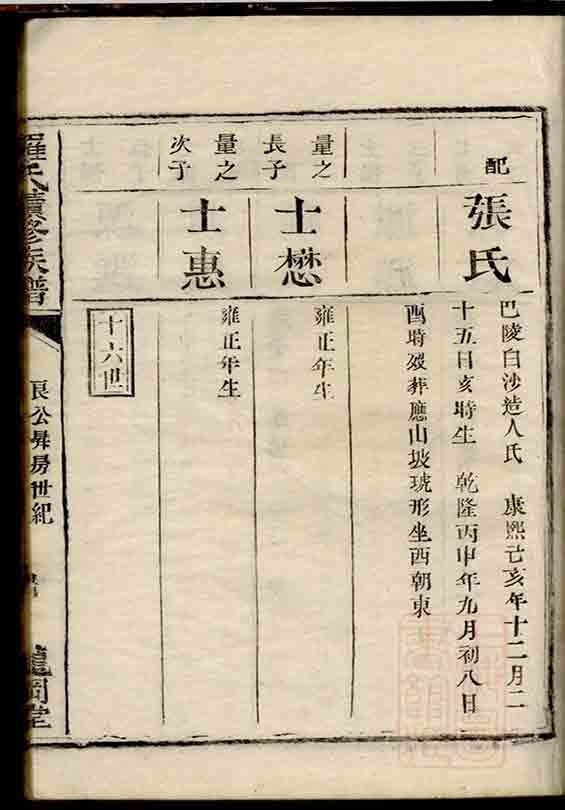 配
張氏
巴陵白沙造人氏　康熙己亥年十二月二
十五日亥時生　乾隆丙申年九月初八日
酉時歿葬應山坡琥形坐西朝東
量之
長子
士懋
雍正年生
量之
次子
士惠
雍正年生
十六世
羅氏續修族譜
良公昇房世紀
龍岡堂